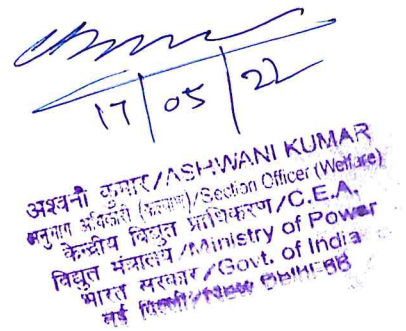 17/05/22
अश्वनी कुमार/ASHWANI KUMAR
अनुभाग अधिकारी (कल्याण)/Section Officer (Welfare)
केन्द्रीय विद्युत प्राधिकरण/C.E.A.
विद्युत मंत्रालय/Ministry of Power
भारत सरकार/Govt. of India
नई दिल्ली/New Delhi-66